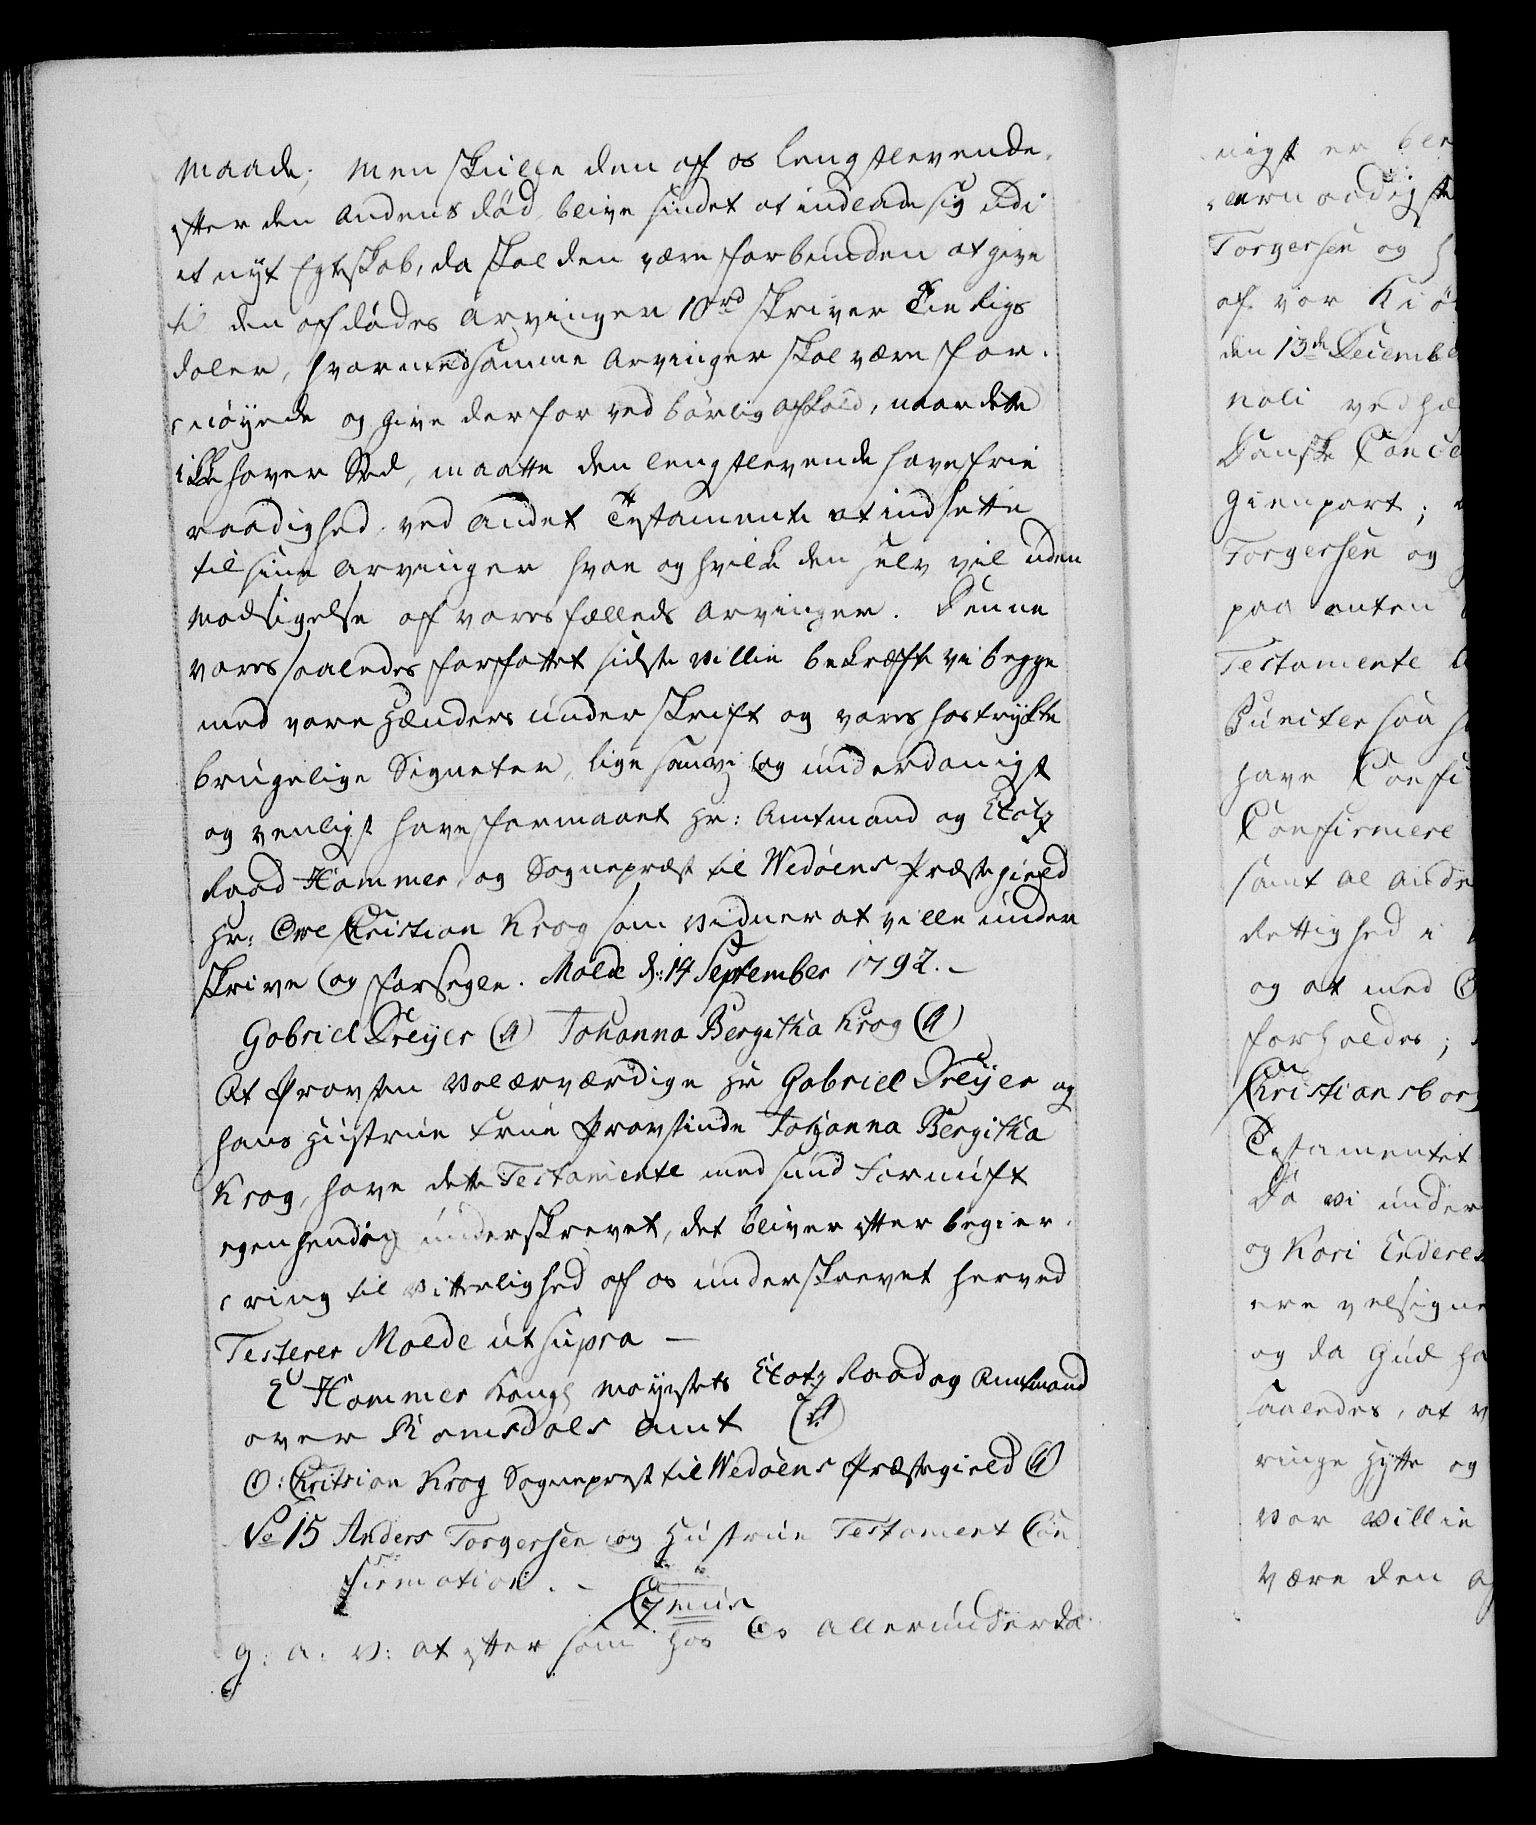 maade; men skulle den af os lengstlevende
efter den andens død blive sindet at indlade sig udi
et nyt Egteskab, da skal den være forbunden at give
til den afdødes arvinger 10 rd skriver Tie Rigs
daler, hvormed samme arvinger skal være for-
nöyede og give derfor ved börlig afkald, naar dette
ikke haver Sted, maatte den lengstlevende have frie
raadighed ved andet Testamente at indsette
til sine arvinger hvem og hvilke den selv vil uden
modsigelse af vores fælleds arvinger. Denne
vores saaledes forfattet sidste villie bekræfte vi begge
med vore Hænders underskrift og vores hostrykte
brugelige Signeter, lige som vi og underdanigst
og venligst have formaaet Hr: Amtmand og Etatz
Raad Hammer, og Sognepræst til Wedöens Præstegield
Hr: Ove Christian Krog som vidner at ville under
skrive og forsegle. Molde d: 14 September 1792. –
Gabriel Dreyer (S) Johanna Bergitha Krog (S)
At Provsten Velærværdige Hr Gabriel Dreyer og
hans Hustrue Frue Provstinde Johanna Bergitha
Krog, have dette Testamente med sund Fornuft
egenhendig underskrevet, det bliver efter begier-
ring til Vitterlighed af os underskrevet herved
Testerer Molde ut supra –
E Hammer Kongl Mayestets Etatz Raad og Amtmand
over Romsdals Amt (S)
O: Chritsian Krog Sogneprest til Wedöens Præstegield (S)
No 15 Anders Torgersen og Hustrue Testament Con
firmation. –
G: a: v: at efter som Hos Os allerunderda-
nigst er
Torgersen og
af vor Kiö
den 13de Decembe
noli ved
Danske Cance
Gienpart;
Torgersen og
paa enten
Testamente
Puncter saa
have Confi
Confirmere
samt al
Rettighed i
og at med
forholdes;
Christiansborg
Testamentet
Da vi under
og Kari Enderes
ere velsigne
og da Gud ha
saaledes, at v
ringe Hytte og
vor villie
være den